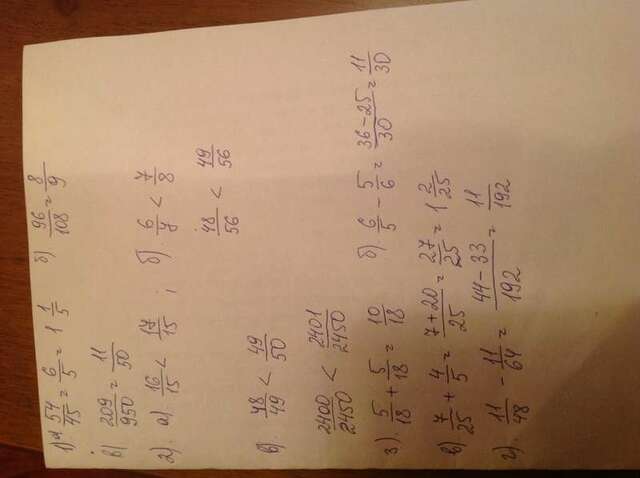 1). а) 54/45 = 6/5 = 1 1/5 б) 96/108 = 8/9
в) 209/950 = 11/50
2). а) 16/15 < 17/15 ; б). 6/7 < 7/8
48/56 < 49/56
в) 48/49 < 49/50
2400/2450 < 2401/2450
3). 5/18 + 5/18 = 10/18 б). 6/5 - 5/6 = 36-25/30 = 11/30
в) 7/25 + 4/5 = 7+20/25 = 27/25 = 1 2/25
г). 11/48 - 11/64 = 44-33/192 = 11/192